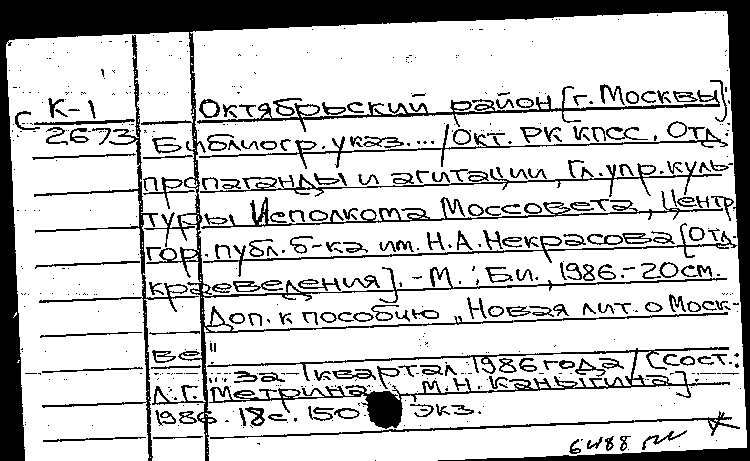 С К-1 Октябрьский район [г. Москвы].
2673 Библиогр. указ. ... / Окт. РК КПСС, Отд.
пропаганды и агитации, Гл. упр. куль-
туры Исполкома Моссовета, Центр.
гор. публ. б-ка им. Н.А. Некрасова [Отд.
краеведения]. - М. : Б.и., 1986. - 20 см.
Доп. к пособию „Новая лит. о Моск-
ве"
... за I квартал 1986 года / [сост.:
Л.Г. Метрина, М.Н. Каныгина].
1986. 18с. 150 экз.
6488